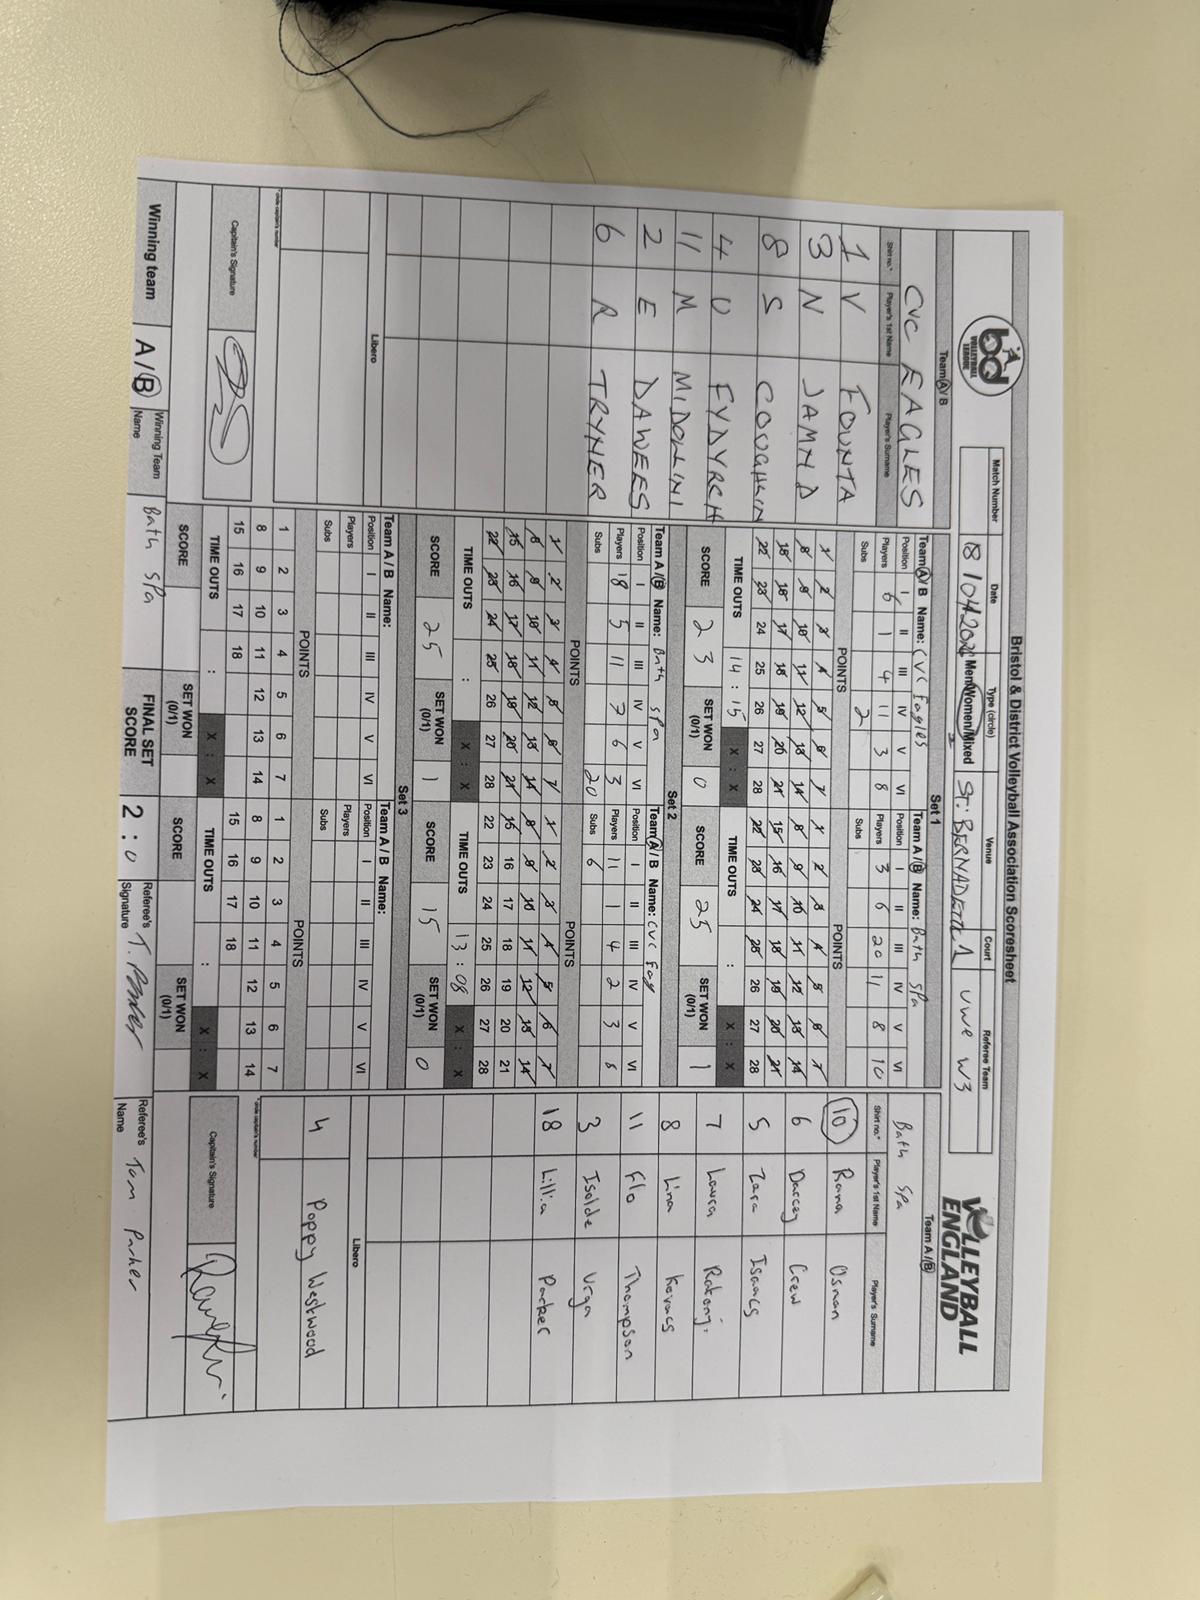 Bristol & District Volleyball Association Scoresheet
bd
VOLLEYBALL
LEAGUE
Match Number
Date
Type (circle)
Venue
Court
Referee Team
18/04/2026
Men/Women/Mixed
2
ST. BERNADETTE
1
UWE W3
VOLLEYBALL
ENGLAND
Team A/B
CVC EAGLES
Shirt no.* Player's 1st Name Player's Surname
1 V FOUNTA
3 N JAMND
8 S COUGHLIN
4 U FYDYRCH
11 M MIDOLINI
2 E DAWEES
6 R TRYNER
Libero
*circle captain's number
Captain's Signature
Set 1
Team A/B Name: CVC Eagles
Position I II III IV V VI
Players 6 1 4 11 3 8
Subs 2
POINTS
1 2 3 4 5 6 7
8 9 10 11 12 13 14
15 16 17 18 19 20 21
22 23 24 25 26 27 28
TIME OUTS 14:15 X:X
SCORE 23 SET WON (0/1) 0
Team A/B Name: Bath Spa
Position I II III IV V VI
Players 3 6 20 11 8 10
Subs
POINTS
1 2 3 4 5 6 7
8 9 10 11 12 13 14
15 16 17 18 19 20 21
22 23 24 25 26 27 28
TIME OUTS : X:X
SCORE 25 SET WON (0/1) 1
Set 2
Team A/B Name: Bath Spa
Position I II III IV V VI
Players 18 5 11 7 6 3
Subs 20
POINTS
1 2 3 4 5 6 7
8 9 10 11 12 13 14
15 16 17 18 19 20 21
22 23 24 25 26 27 28
TIME OUTS : X:X
SCORE 25 SET WON (0/1) 1
Team A/B Name: CVC Eag
Position I II III IV V VI
Players 11 1 4 2 3 8
Subs 6
POINTS
1 2 3 4 5 6 7
8 9 10 11 12 13 14
15 16 17 18 19 20 21
22 23 24 25 26 27 28
TIME OUTS 13:08 X:X
SCORE 15 SET WON (0/1) 0
Set 3
Team A/B Name:
Position I II III IV V VI
Players
Subs
POINTS
1 2 3 4 5 6 7
8 9 10 11 12 13 14
15 16 17 18
TIME OUTS : X:X
SCORE SET WON (0/1)
Team A/B Name:
Position I II III IV V VI
Players
Subs
POINTS
1 2 3 4 5 6 7
8 9 10 11 12 13 14
15 16 17 18
TIME OUTS : X:X
SCORE SET WON (0/1)
Team A/B
Bath Spa
Shirt no.* Player's 1st Name Player's Surname
10 Rana Osman
6 Darcey Crew
5 Zara Isaacs
7 Laura Rakonji
8 Lina Kovacs
11 Flo Thompson
3 Isolde Urga
18 Lillia Parker
Libero
4 Poppy Westwood
*circle captain's number
Captain's Signature
Winning team A/B
Winning Team Name Bath Spa
FINAL SET SCORE 2:0
Referee's Signature T. Parker
Referee's Name Tom Parker